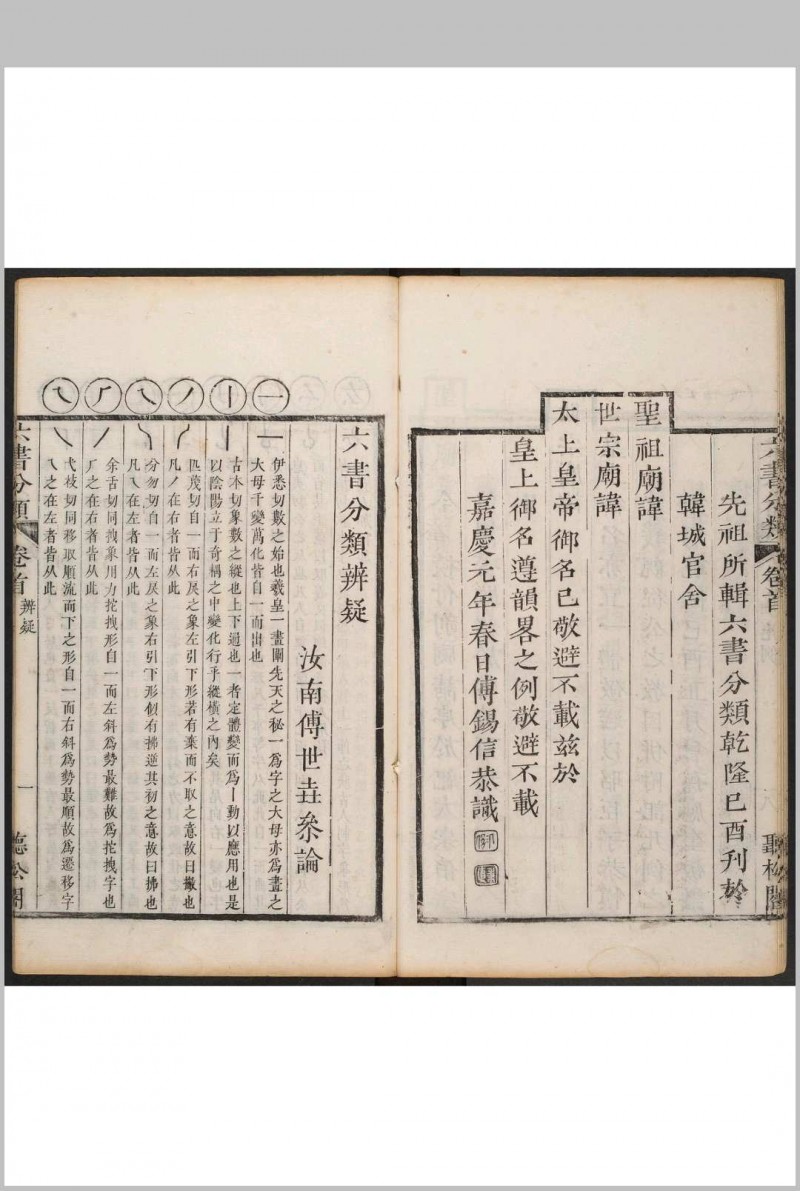 六書分類
卷首
聽松閣
先祖所輯六書分類乾隆己酉刊於
韓城官舍
聖祖廟諱
世宗廟諱
太上皇帝御名已敬避不載茲於
皇上御名遵韻畧之例敬避不載
嘉慶元年春日傅錫信恭識
六書分類辨疑
汝南傅世垚叅論
一
一
伊悉切數之始也羲皇一畫闢先天之秘一爲字之大母亦爲畫之
大母千變萬化皆自一而出也
丨
丨
古本切象數之縱也上下通也一者定體變而爲丨動以應用也是
以陰陽立于奇耦之中變化行乎縱橫之內矣
丿
丿
匹蔑切自一而右戾之象左引下形若有棄而不取之意故曰撇也
凡丿在右者皆从此
乀
乀
分勿切自一而左戾之象右引下形似有拂逆其初之意故曰拂也
凡乀在左者皆从此
𠂆
余舌切同拽象用力拕拽形自一而左斜爲勢最難故爲拕拽字也
𠂆之在右者皆从此
乁
弋枝切同移取順流而下之形自一而右斜爲勢最順故爲遷移字
乁之在左者皆从此
六書分類
卷首
辨疑
一
聽松閣